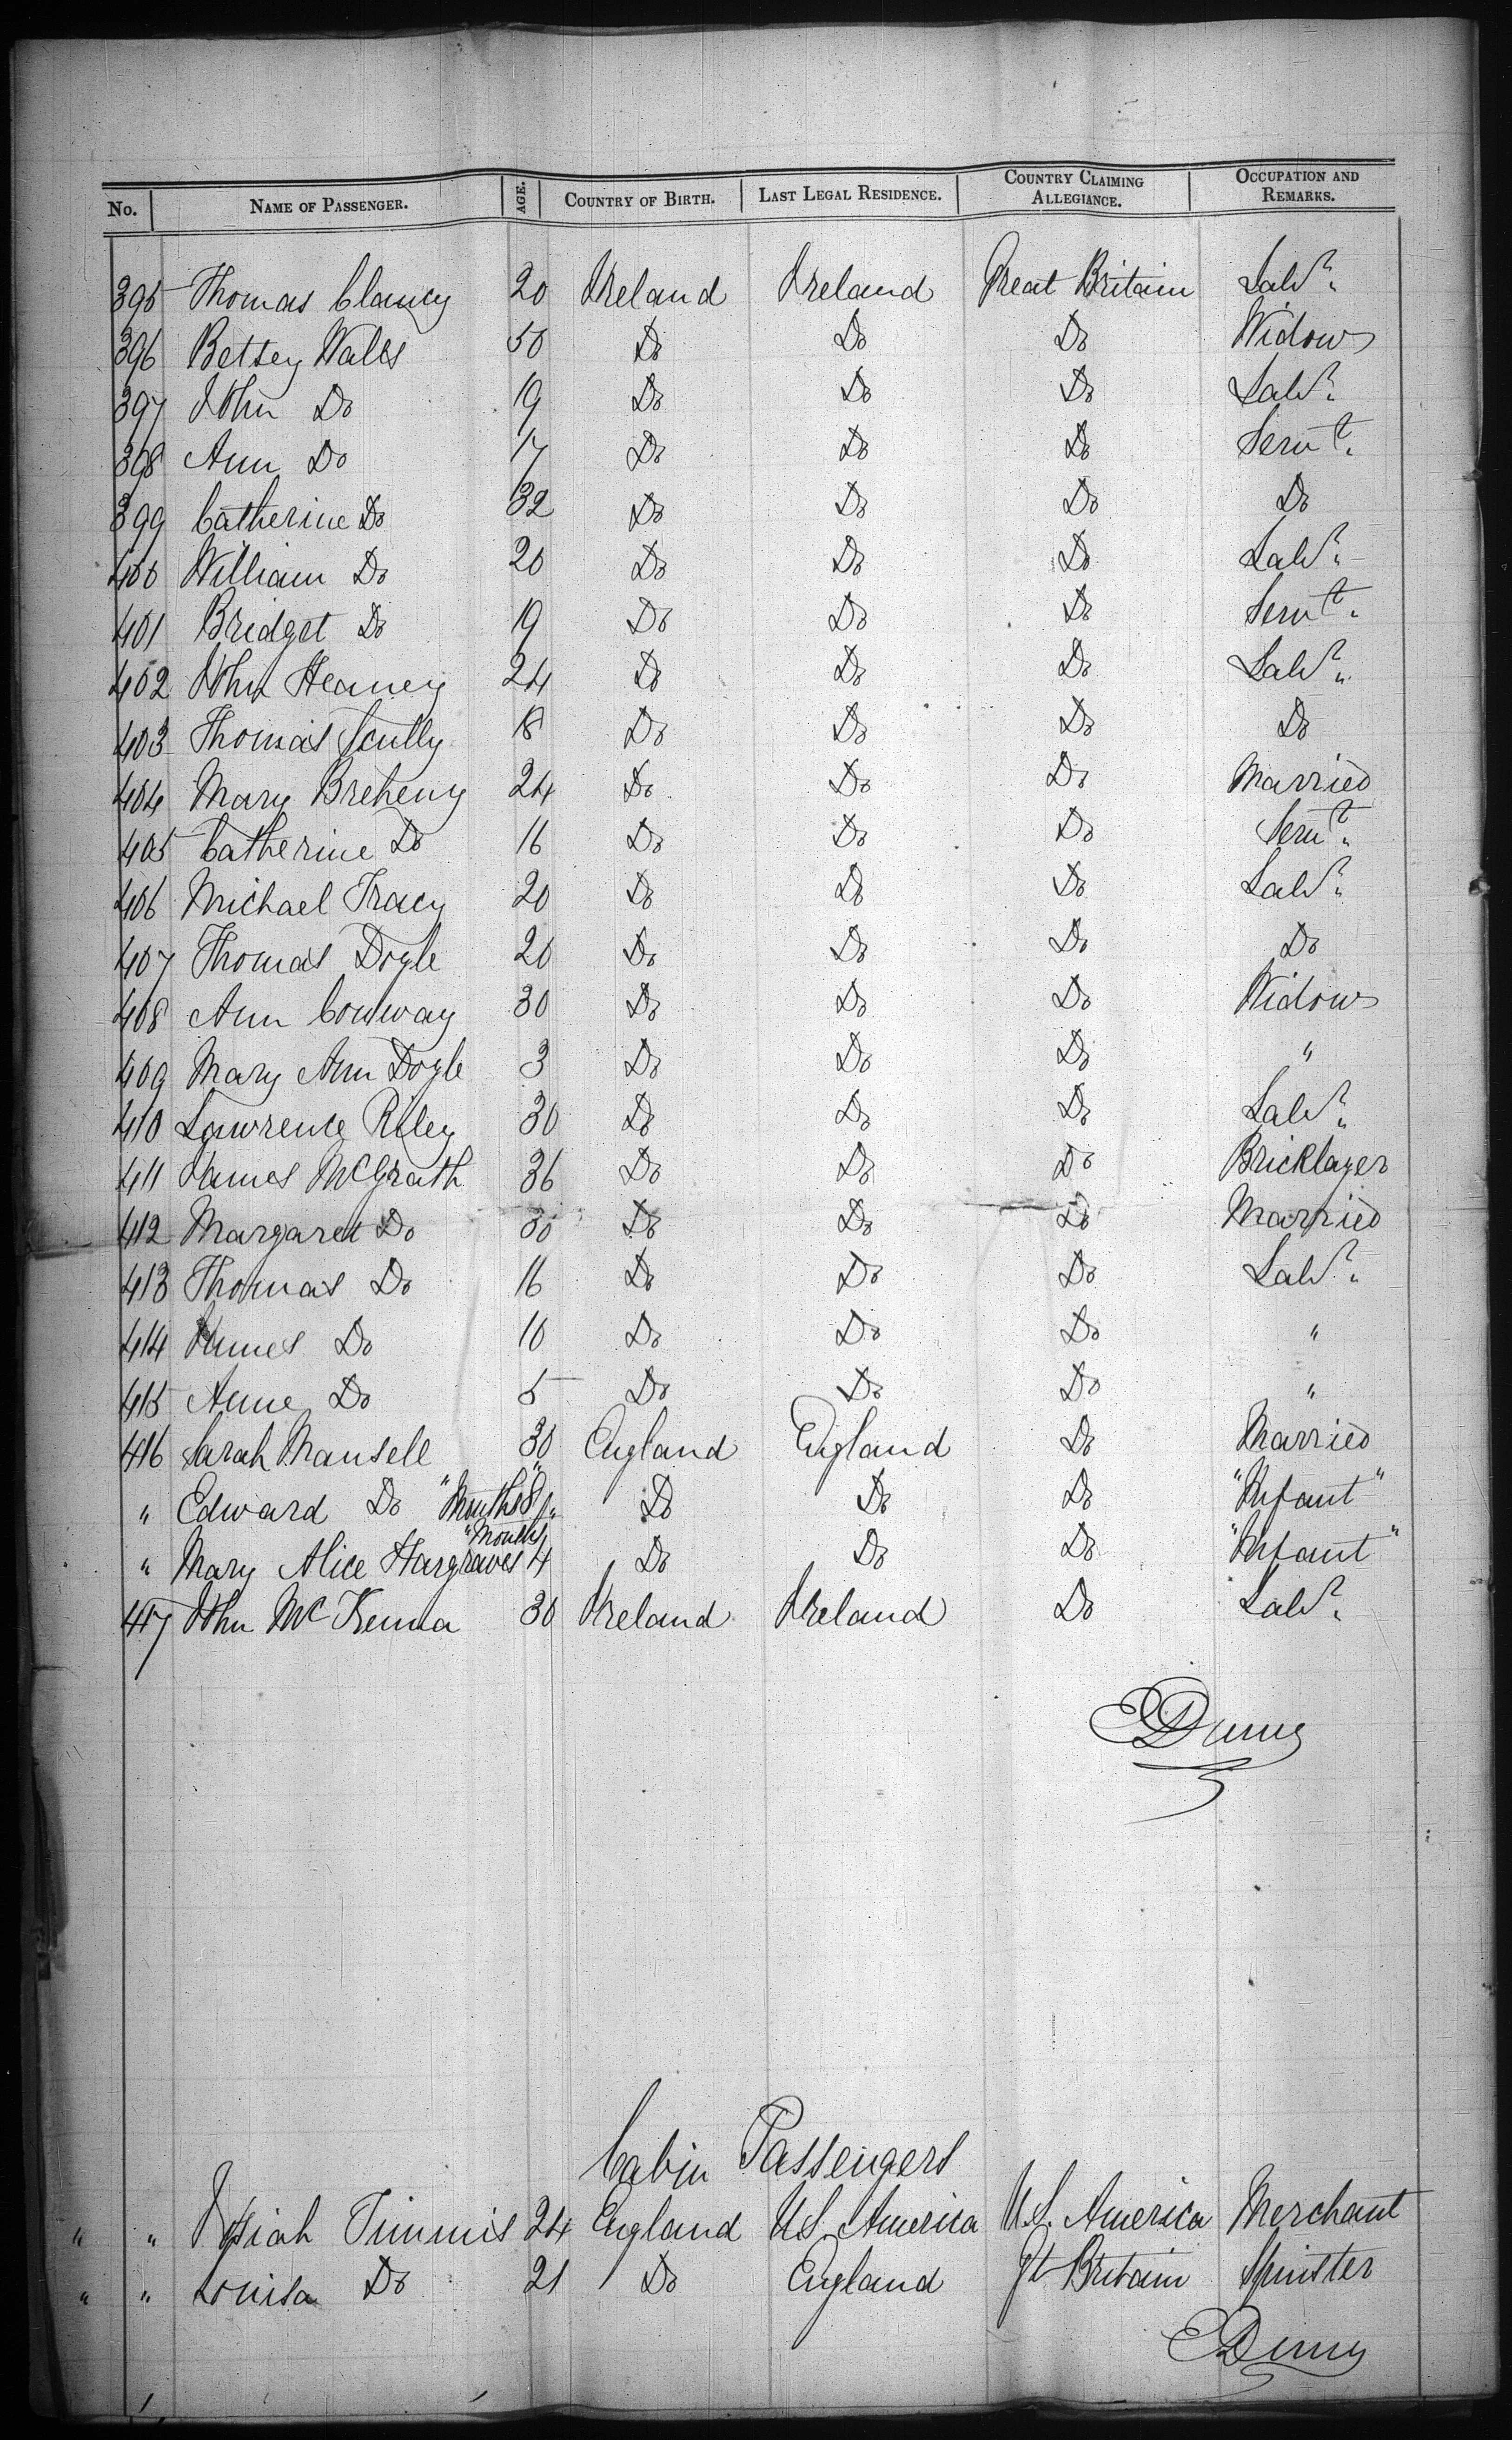 No. NAME OF PASSENGER. AGE. COUNTRY OF BIRTH. LAST LEGAL RESIDENCE. COUNTRY CLAIMING ALLEGIANCE. OCCUPATION AND REMARKS.
395 Thomas Clancy 20 Ireland Ireland Great Britain Labr.
396 Betsey Walls 50 Do Do Do Widow
397 John Do 19 Do Do Do Labr.
398 Ann Do 17 Do Do Do Servt.
399 Catherine Do 32 Do Do Do Do
400 William Do 20 Do Do Do Labr.
401 Bridget Do 19 Do Do Do Servt.
402 John Heaney 24 Do Do Do Labr.
403 Thomas Scully 18 Do Do Do Do
404 Mary Breheny 24 Do Do Do Married
405 Catherine Do 16 Do Do Do Servt.
406 Michael Tracy 20 Do Do Do Labr.
407 Thomas Doyle 20 Do Do Do Do
408 Ann Conway 30 Do Do Do Widow
409 Mary Ann Doyle 3 Do Do Do "
410 Lawrence Riley 30 Do Do Do Labr.
411 James McGrath 36 Do Do Do Bricklayer
412 Margaret Do 30 Do Do Do Married
413 Thomas Do 16 Do Do Do Labr.
414 James Do 10 Do Do Do "
415 Anne Do 5 Do Do Do "
416 Sarah Mansell 30 England England Do Married
" Edward Do "Months" 8 Do Do Do "Infant"
" Mary Alice Hargraves "Months" 4 Do Do Do "Infant"
417 John McKenna 30 Ireland Ireland Do Labr.
Cabin Passengers
" " Josiah Timmis 24 England U.S. America U.S. America Merchant
" " Louisa Do 21 Do England Gt Britain Spinster